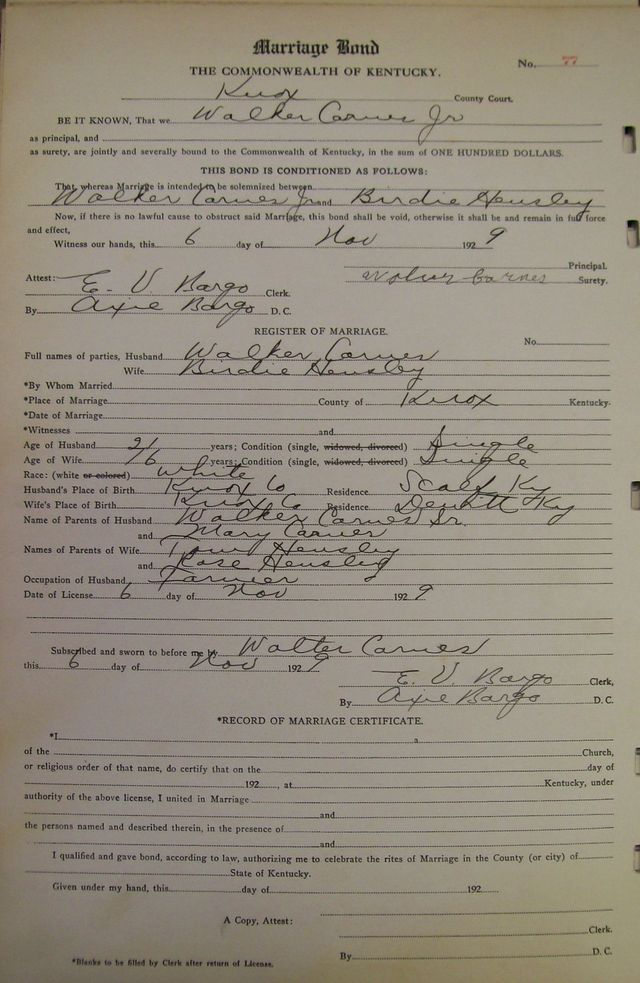 Marriage Bond
No. 77
THE COMMONWEALTH OF KENTUCKY.
Knox County Court.
BE IT KNOWN, That we Walker Carnes Jr
as principal, and
as surety, are jointly and severally bound to the Commonwealth of Kentucky, in the sum of ONE HUNDRED DOLLARS.
THIS BOND IS CONDITIONED AS FOLLOWS:
That, whereas Marriage is intended to be solemnized between
Walker Carnes Jr and Birdie Hensley
Now, if there is no lawful cause to obstruct said Marriage, this bond shall be void, otherwise it shall be and remain in full force
and effect,
Witness our hands, this 6 day of Nov 1929
Principal.
Attest: Carnes Surety.
E. V. Bargo Clerk.
By Axie Bargo D. C.
REGISTER OF MARRIAGE.
No.
Full names of parties, Husband Walker Carnes
Wife Birdie Hensley
*By Whom Married
*Place of Marriage County of Knox Kentucky.
*Date of Marriage
*Witnesses and
Age of Husband 21 years; Condition (single, widowed, divorced) Single
Age of Wife 16 years; Condition (single, widowed, divorced) Single
Race: (white or colored) White
Husband's Place of Birth Knox Co Residence Scalf Ky
Wife's Place of Birth Knox Co Residence Dewitt Ky
Name of Parents of Husband Walker Carnes Sr.
and Mary Carnes
Names of Parents of Wife Tom Hensley
and Rose Hensley
Occupation of Husband Farmer
Date of License 6 day of Nov 1929
Subscribed and sworn to before me by Walter Carnes
this 6 day of Nov 1929
E. V. Bargo Clerk,
By Axie Bargo D. C.
*RECORD OF MARRIAGE CERTIFICATE.
*I, a
of the Church,
or religious order of that name, do certify that on the day of
192 , at Kentucky, under
authority of the above license, I united in Marriage
and
the persons named and described therein, in the presence of
and
I qualified and gave bond, according to law, authorizing me to celebrate the rites of Marriage in the County (or city) of
State of Kentucky.
Given under my hand, this day of 192
A Copy, Attest:
Clerk.
By D. C.
*Blanks to be filled by Clerk after return of License.